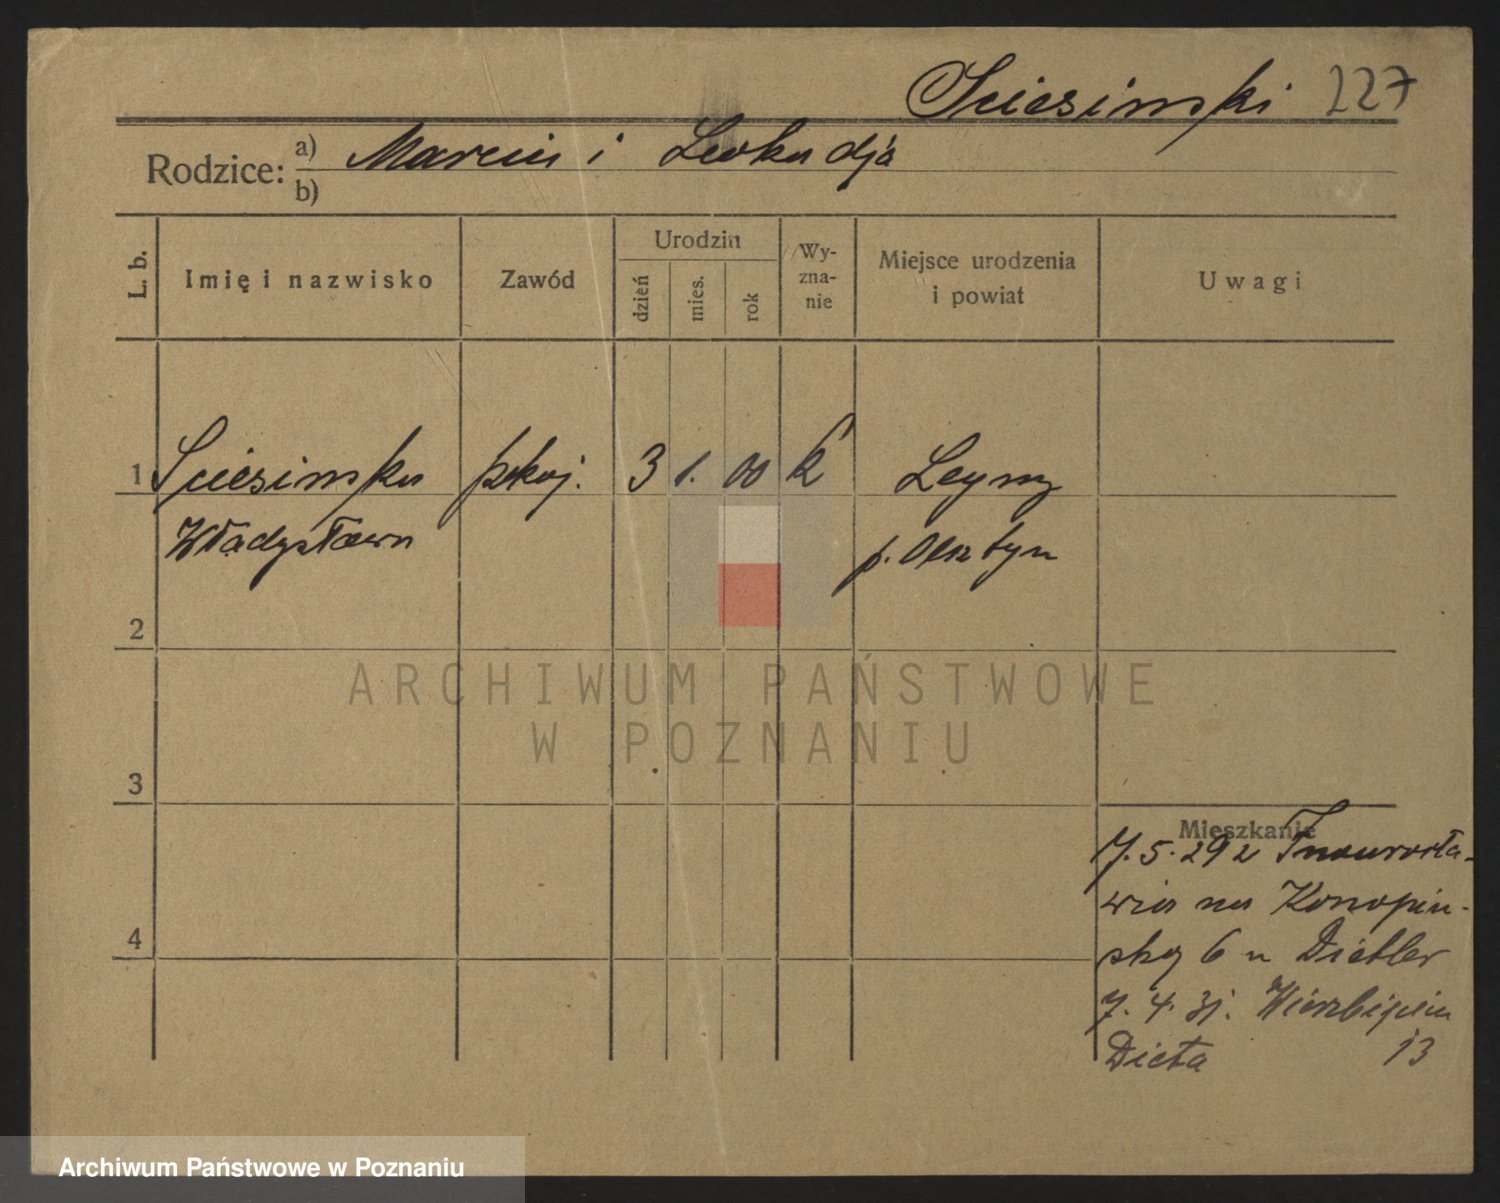 Sciesinski 227
Rodzice: a) Marcin i Leokadja
b)
L. b.
Imię i nazwisko
Zawód
Urodzin
dzień
mies.
rok
Wy-
zna-
nie
Miejsce urodzenia
i powiat
Uwagi
1 Sciesinska pokoj. 3 1. 00 k Leyny
Władysława p. Olsztyn
2
3
4
Mieszkanie
7.5.29 z Inowrocła-
wia na Konopin-
sky 6 u Dietler
7.4.31. Wierzbięcin
Dieta 13
ARCHIWUM PAŃSTWOWE
W POZNANIU
Archiwum Państwowe w Poznaniu